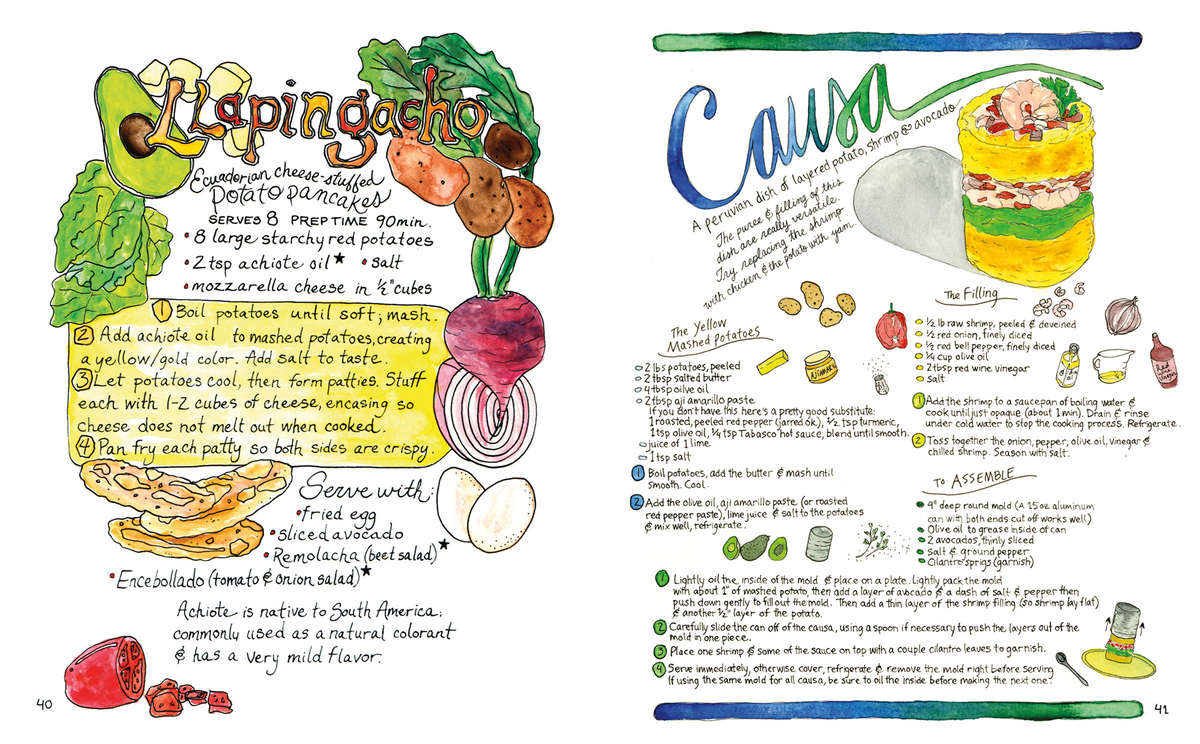 Llapingacho
Ecuadorian cheese-stuffed
Potato Pancakes
SERVES 8 PREP TIME 90 min.
• 8 large starchy red potatoes
• 2 tsp achiote oil★ • salt
• mozzarella cheese in ½" cubes
1 Boil potatoes until soft; mash.
2 Add achiote oil to mashed potatoes, creating
a yellow/gold color. Add salt to taste.
3 Let potatoes cool, then form patties. Stuff
each with 1-2 cubes of cheese, encasing so
cheese does not melt out when cooked.
4 Pan fry each patty so both sides are crispy.
Serve with:
• fried egg
• sliced avocado
• Remolacha (beet salad)★
• Encebollado (tomato & onion salad)★
Achiote is native to South America;
commonly used as a natural colorant
& has a very mild flavor.
40
Causa
A peruvian dish of layered potato, shrimp & avocado
The puree & filling of this
dish are really versatile.
Try replacing the shrimp
with chicken & the potato with yam.
The Yellow
Mashed Potatoes
AJI AMARILLO
2 lbs potatoes, peeled
2 tbsp salted butter
4 tbsp oilve oil
2 tbsp aji amarillo paste
If you don't have this here's a pretty good substitute:
1 roasted, peeled red pepper (jarred ok), ½ tsp turmeric,
1 tsp olive oil, ¼ tsp Tabasco hot sauce, blend until smooth.
juice of 1 lime
1 tsp salt
1 Boil potatoes, add the butter & mash until
smooth. Cool.
2 Add the olive oil, aji amarillo paste (or roasted
red pepper paste), lime juice & salt to the potatoes
& mix well, refrigerate.
The Filling
½ lb raw shrimp, peeled & deveined
½ red onion, finely diced
½ red bell pepper, finely diced
¼ cup olive oil
2 tbsp red wine vinegar
salt
Red wine Vinegar
1 Add the shrimp to a saucepan of boiling water &
cook until just opaque (about 1 min). Drain & rinse
under cold water to stop the cooking process. Refrigerate.
2 Toss together the onion, pepper, olive oil, vinegar &
chilled shrimp. Season with salt.
To ASSEMBLE
4" deep round mold (A 15 oz aluminum
can with both ends cut off works well)
Olive oil to grease inside of can
2 avocados, thinly sliced
Salt & ground pepper
Cilantro sprigs (garnish)
1 Lightly oil the inside of the mold & place on a plate. Lightly pack the mold
with about 1" of mashed potato, then add a layer of avocado & a dash of salt & pepper then
push down gently to fill out the mold. Then add a thin layer of the shrimp filling (so shrimp lay flat)
& another ½" layer of the potato.
2 Carefully slide the can off of the causa, using a spoon if necessary to push the layers out of the
mold in one piece.
3 Place one shrimp & some of the sauce on top with a couple cilantro leaves to garnish.
4 Serve immediately, otherwise cover, refrigerate & remove the mold right before serving
If using the same mold for all causa, be sure to oil the inside before making the next one!
41